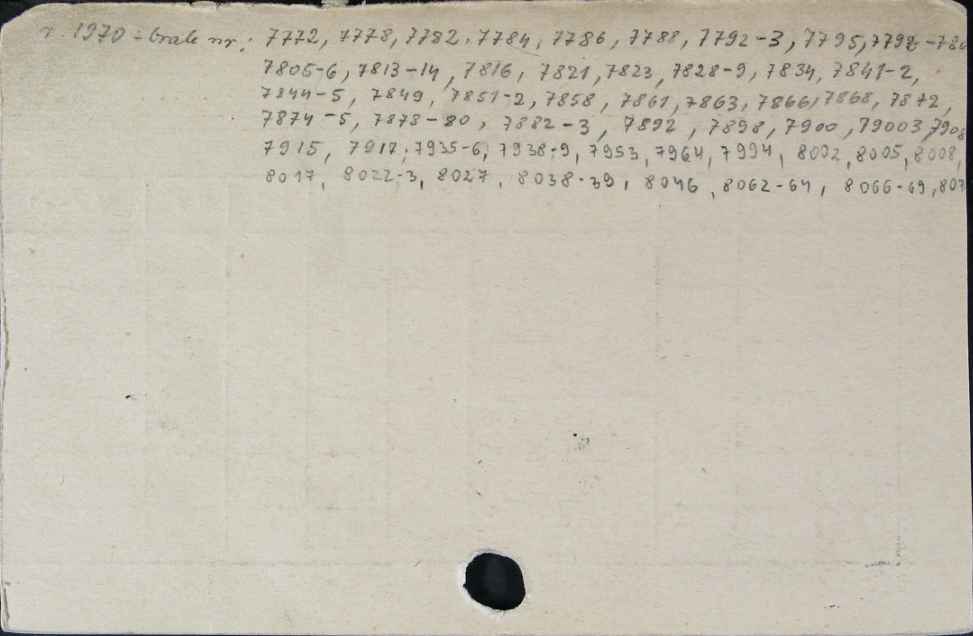 r. 1970 - brak nr: 7772, 7778, 7782, 7784, 7786, 7788, 7792-3, 7795,
7805-6, 7813-14, 7816, 7821, 7823, 7828-9, 7834, 7841-2,
7844-5, 7849, 7851-2, 7858, 7861, 7863, 7866, 7868, 7872,
7874-5, 7878-80, 7882-3, 7892, 7898, 7900, 79003, 7908
7915, 7917, 7935-6, 7938-9, 7953, 7964, 7994, 8002, 8005, 8008,
8017, 8022-3, 8027, 8038-39, 8046, 8062-64, 8066-69,